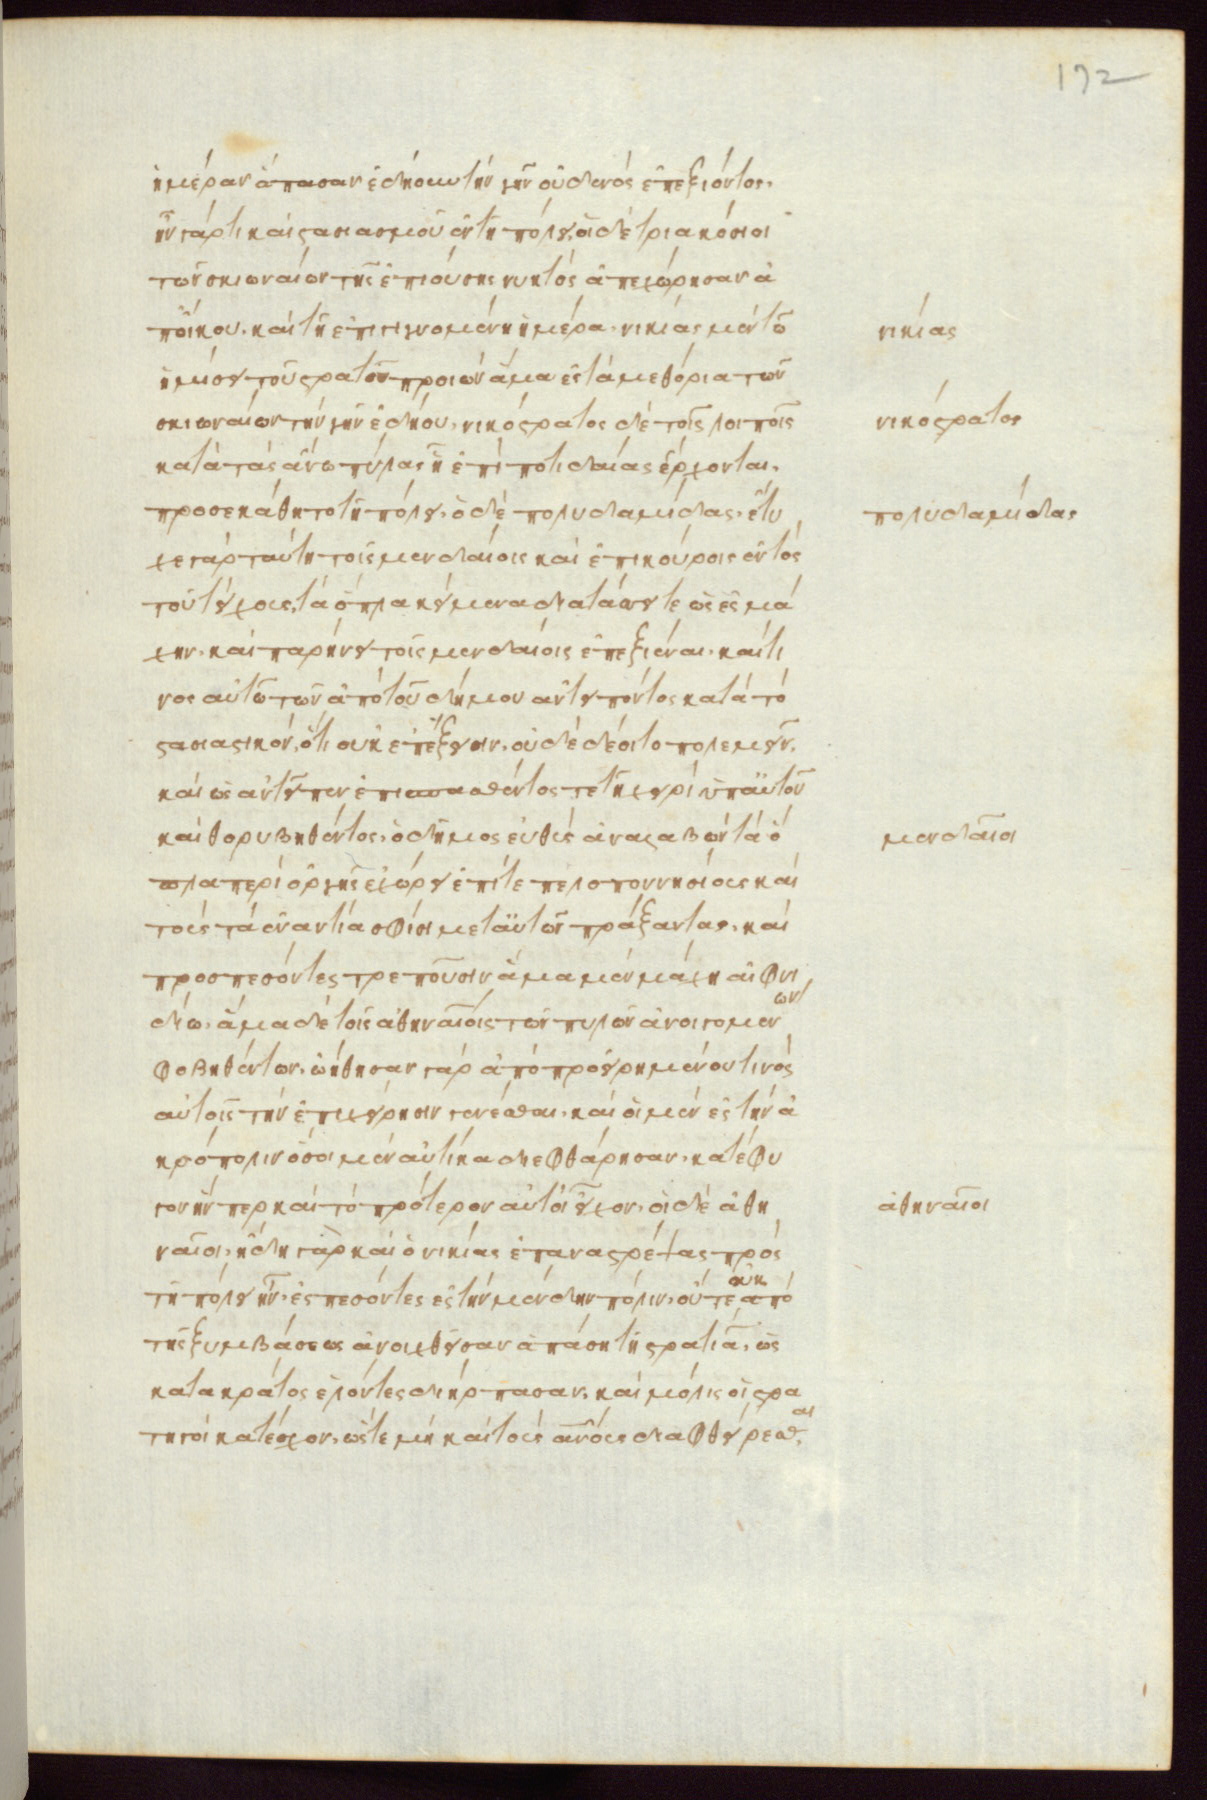 172
ἡμέραν ἅπασαν ἐδήουν τὴν γῆν οὐδενὸς ἐπεξιόντος.
ἦν γάρ τι καὶ στασιασμοῦ ἐν τῇ πόλει, οἱ δὲ τριακόσιοι
τῶν σκιωναίων τῆς ἐπιούσης νυκτὸς ἀπεχώρησαν ἐ
π' οἴκου. καὶ τῇ ἐπιγιγνομένῃ ἡμέρᾳ. νικίας μὲν τῷ
νικίας
ἡμίσει τοῦ στρατοῦ προϊὼν ἅμα ἐς τὰ μεθόρια τῶν
σκιωναίων τὴν γῆν ἐδῄου, νικόστρατος δὲ τοῖς λοιποῖς
νικόστρατος
κατὰ τὰς ἄνω πύλας ᾗ ἐπὶ ποτιδαίας ἔρχονται.
προσεκάθητο τῇ πόλει. ὁ δὲ πολυδαμίδας. ἔτυ
πολυδαμίδας
χε γὰρ ταύτῃ τοῖς μενδαίοις καὶ ἐπικούροις ἐντὸς
τοῦ τείχους, τὰ ὅπλα κείμενα διατάσσει τε ὡς ἐς μά
χην. καὶ παρῄνει τοῖς μενδαίοις ἐπεξιέναι. καί τι
νος αὐτῷ τῶν ἀπὸ τοῦ δήμου ἀντειπόντος κατὰ τὸ
στασιαστικόν, ὅτι οὐκ ἐπέξεισιν. οὐδὲ δέοιτο πολεμεῖν.
καὶ ὡς ἀντεῖπεν ἐπισπασθέντος τε τῇ χειρὶ ὑπ' αὐτοῦ
καὶ θορυβηθέντος. ὁ δῆμος εὐθὺς ἀναλαβὼν τὰ ὅ
μενδαῖοι
πλα περὶ ὀργῆς ἐχώρει ἐπί τε πελοποννησίους καὶ
τοὺς τὰ ἐναντία σφίσι μετ' αὐτῶν πράξαντας. καὶ
προσπεσόντες τρέπουσιν ἅμα μὲν μάχῃ αἰφνι
δίῳ. ἅμα δὲ τοῖς ἀθηναίοις τῶν πυλῶν ἀνοιγομένων
φοβηθέντων. ᾠήθησαν γὰρ ἀπὸ προειρημένου τινὸς
αὐτοῖς τὴν ἐπιχείρησιν γενέσθαι. καὶ οἱ μὲν ἐς τὴν ἀ
κρόπολιν ὅσοι μὲν αὐτίκα διεφθάρησαν. κατέφυ
γον ἥνπερ καὶ τὸ πρότερον αὐτοὶ εἶχον. οἱ δὲ ἀθη
ἀθηναῖοι
ναῖοι. ἤδη γὰρ καὶ ὁ νικίας ἐπαναστρέψας πρὸς
τῇ πόλει ἦν. ἐσπεσόντες ἐς τὴν μένδην πόλιν. ἅτε οὐκ ἀπὸ
τῆς ξυμβάσεως ἀνοιχθεῖσαν ἁπάσῃ τῇ στρατιᾷ. ὡς
κατακράτος ἑλόντες διήρπασαν. καὶ μόλις οἱ στρα
τηγοὶ κατέσχον. ὥστε μὴ καὶ τοὺς ἀνους διαφθείρεσθαι.